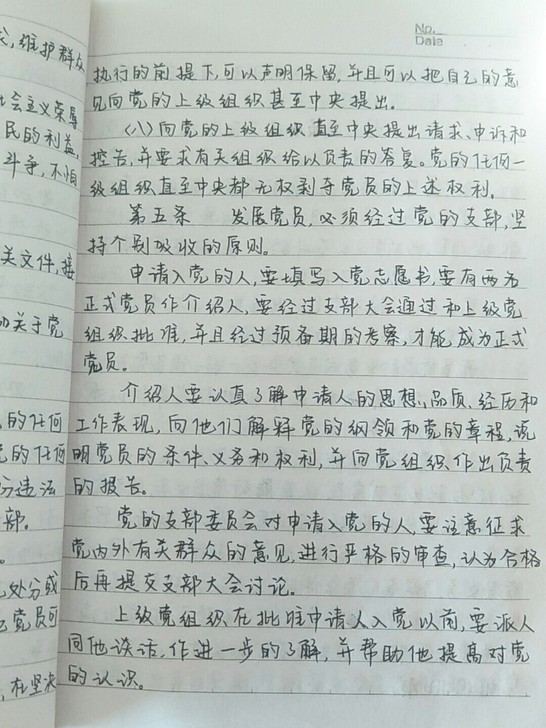 No.
Date
求,维护群众
社会主义荣辱
民的利益,
斗争,不怕
关文件,接
加关于党
的任何
党的任何
分违法
部。
处分或
党员可
,在坚决
执行的前提下,可以声明保留,并且可以把自己的意
见向党的上级组织甚至中央提出。
(八)向党的上级组织直至中央提出请求、申诉和
控告,并要求有关组织给以负责的答复。党的任何一
级组织直至中央都无权剥夺党员的上述权利。
第五条 发展党员,必须经过党的支部,坚
持个别吸收的原则。
申请入党的人,要填写入党志愿书,要有两名
正式党员作介绍人,要经过支部大会通过和上级党
组织批准,并且经过预备期的考察,才能成为正式
党员。
介绍人要认真了解申请人的思想、品质、经历和
工作表现,向他们解释党的纲领和党的章程,说
明党员的条件、义务和权利,并向党组织作出负责
的报告。
党的支部委员会对申请入党的人,要注意征求
党内外有关群众的意见,进行严格的审查,认为合格
后再提交支部大会讨论。
上级党组织在批准申请人入党以前,要派人
同他谈话,作进一步的了解,并帮助他提高对党
的认识。